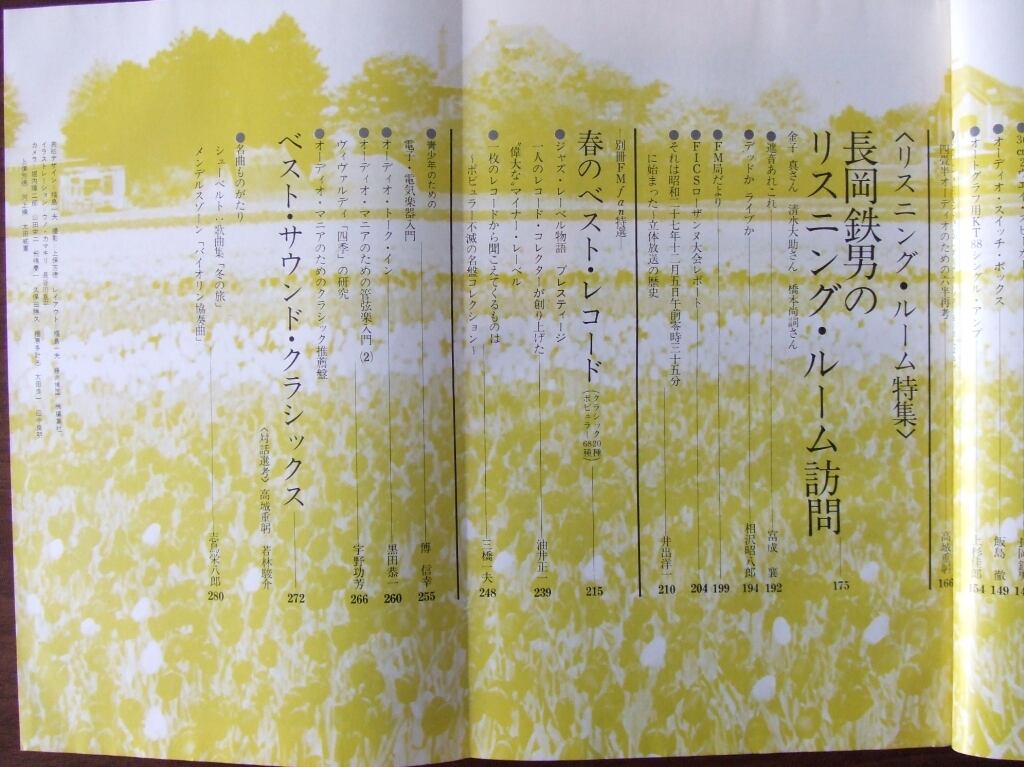 オーディオ・スイッチ・ボックス
飯島 徹
149
オートグラフ用KT88シングル・アンプ
上杉佳郎
154
四畳半オーディオのための六年再考
高城重躬
166
〈リスニング・ルーム特集〉
長岡鉄男の
リスニング・ルーム訪問
175
金子 真さん 清水大助さん 橋本尚詞さん
●進音あれこれ
富成 襄
192
●デッドか ライブか
相沢昭八郎
194
●FM局だより
199
●FICSローザンヌ大会レポート
204
●それは昭和二十七年十二月五日午前零時三十五分
に始まった〜立体放送の歴史
井出洋一
210
別冊FMfan特選
春のベスト・レコード
(クラシック20種
ポピュラー68種)
215
●ジャズ・レーベル物語 プレスティージ
一人のレコード・コレクタが創り上げた
“偉大な”マイナー・レーベル
油井正一
239
●一枚のレコードから聞こえてくるものは
〜ポピュラー不滅の名盤コレクション〜
三橋一夫
248
●青少年のための
電子・電気楽器入門
傅 信幸
255
●オーディオ・トーク・イン
黒田恭一
260
●オーディオ・マニアのための管弦楽入門(2)
ヴィヴァルディ「四季」の研究
宇野功芳
266
●オーディオ・マニアのためのクラシック推薦盤
ベスト・サウンド・クラシックス
272
〈対話選考〉高城重躬 若林駿介
●名曲ものがたり
シューベルト:歌曲集「冬の旅」
メンデルスゾーン「バイオリン協奏曲」
志鳥栄八郎
280